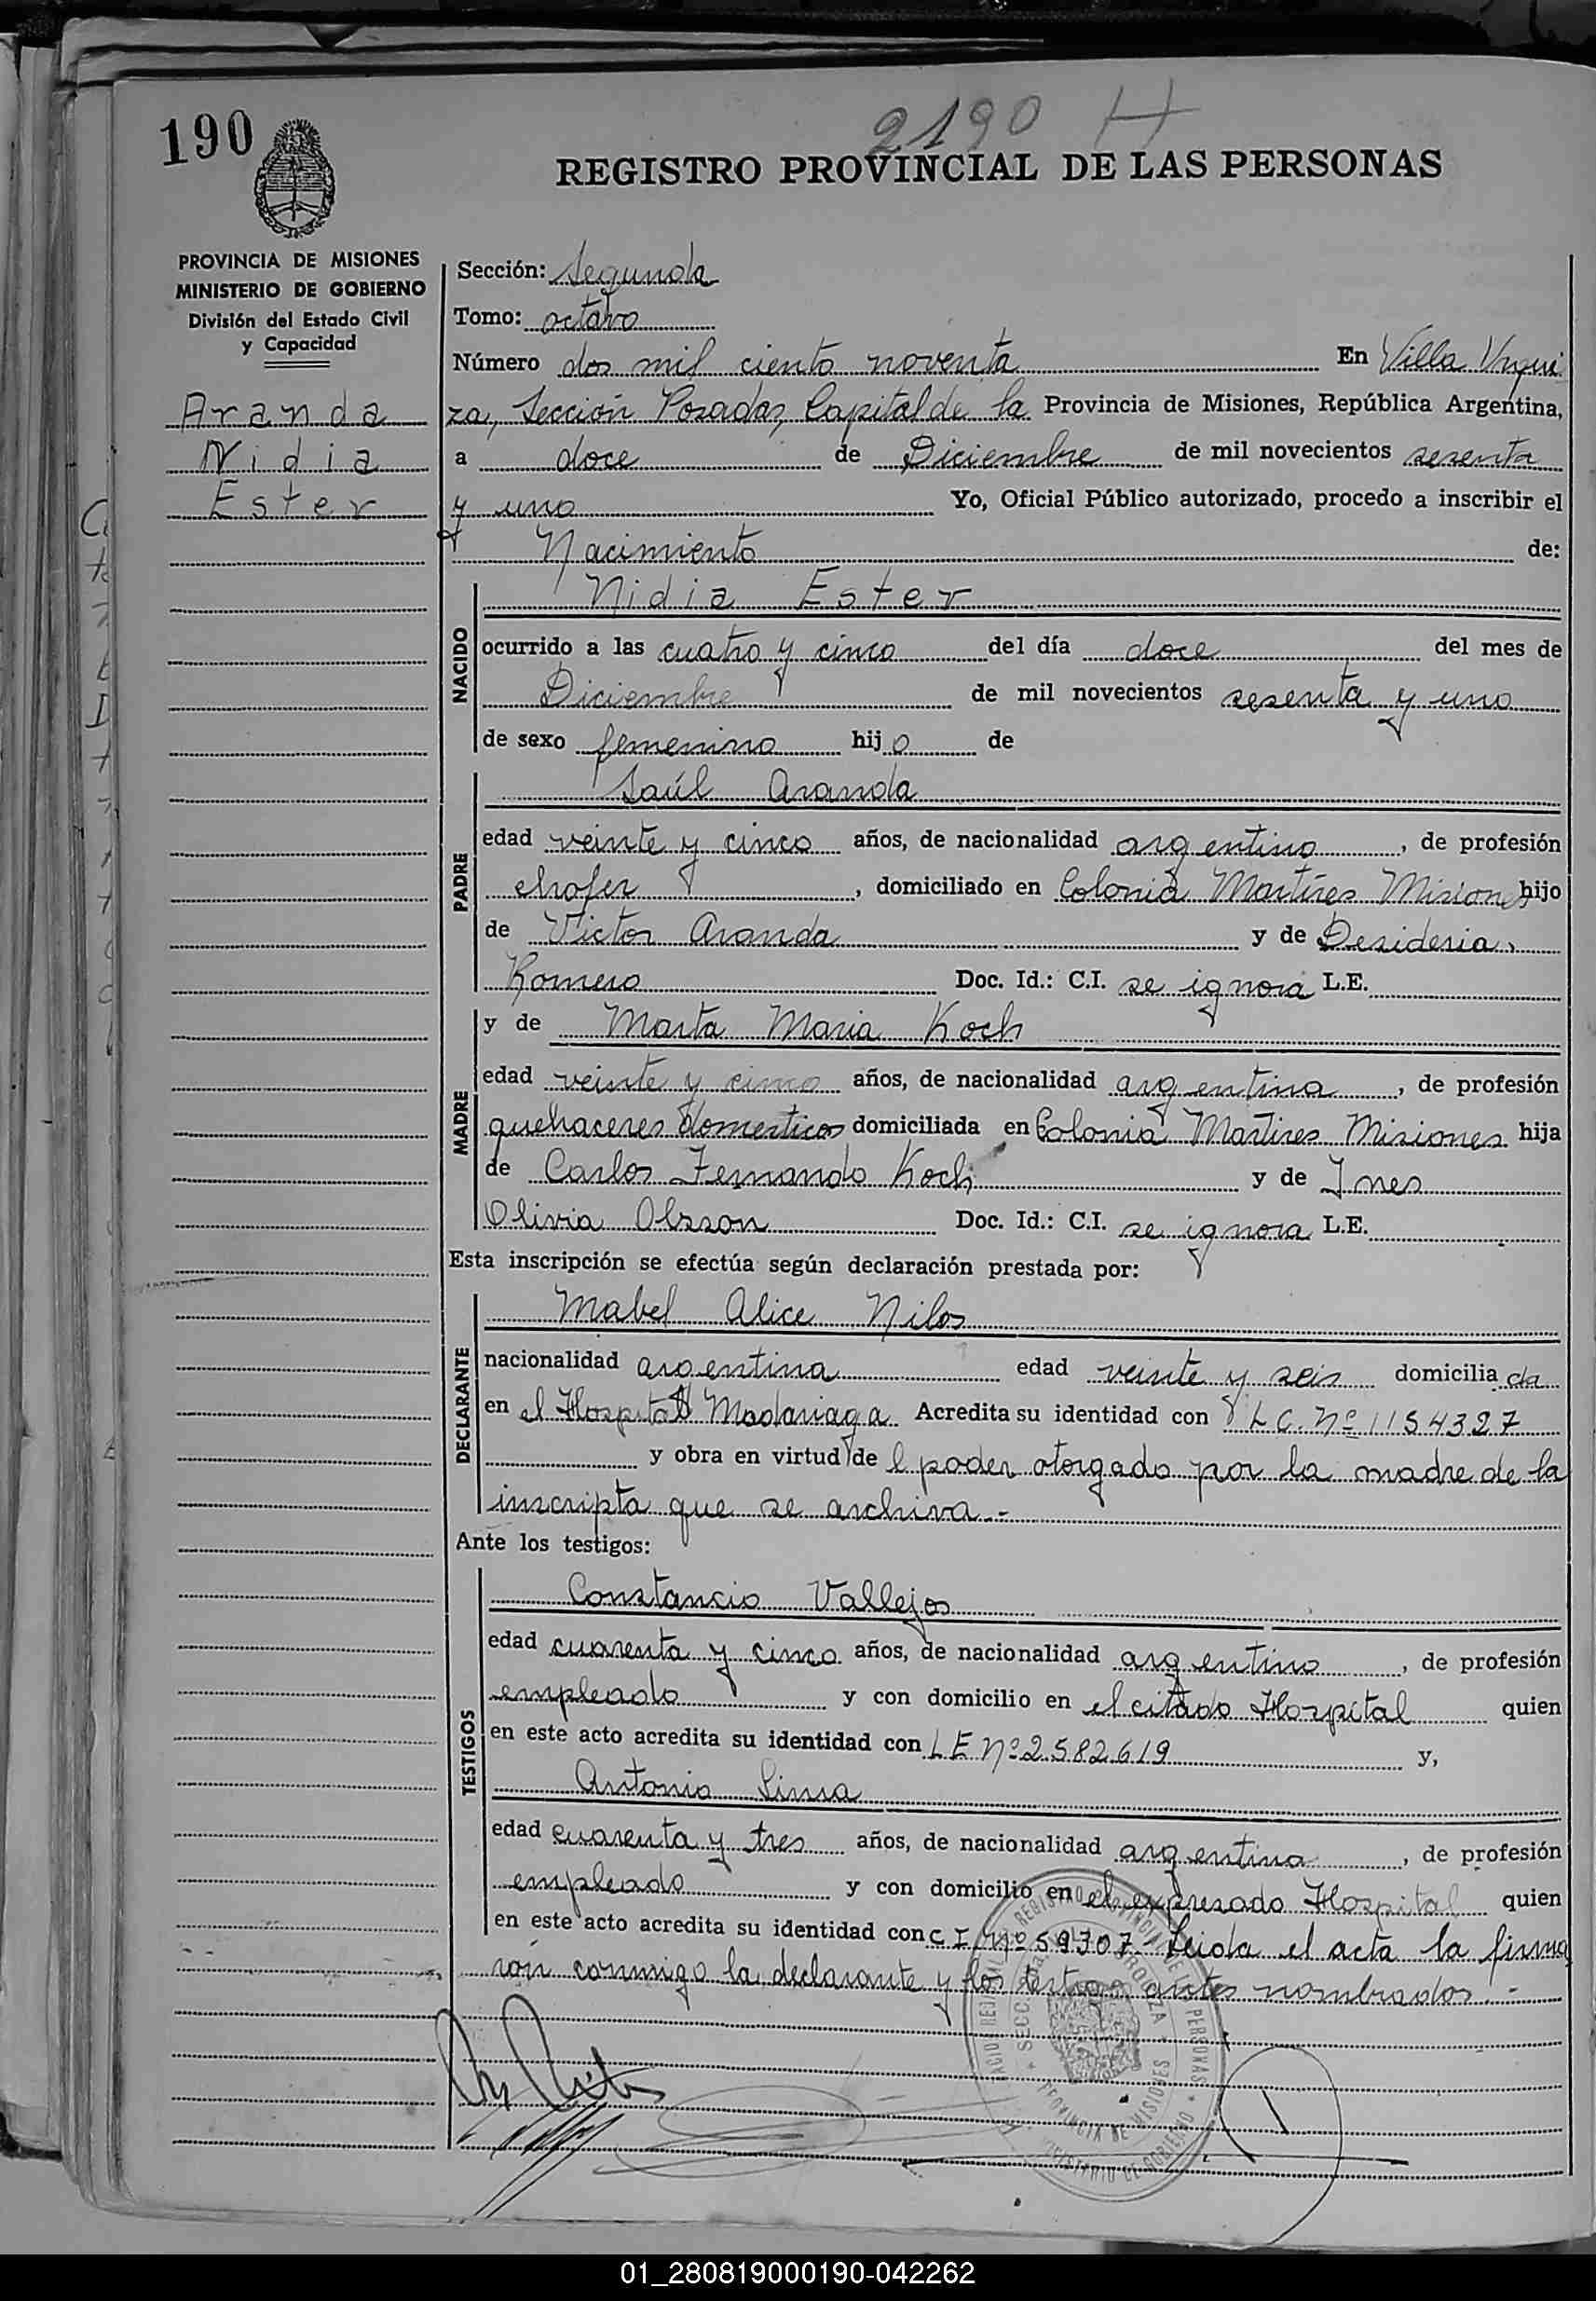 2190 H
190
REGISTRO PROVINCIAL DE LAS PERSONAS
PROVINCIA DE MISIONES
MINISTERIO DE GOBIERNO
División del Estado Civil
y Capacidad
Aranda
Nidia
Ester
Sección: Segunda
Tomo: octavo
Número dos mil ciento noventa En Villa Urqui
za, Sección Posadas, Capital de la Provincia de Misiones, República Argentina,
a doce de Diciembre de mil novecientos sesenta
y uno Yo, Oficial Público autorizado, procedo a inscribir el
Nacimiento de:
NACIDO
Nidia Ester
ocurrido a las cuatro y cinco del día doce del mes de
Diciembre de mil novecientos sesenta y uno
de sexo femenino hijo de
PADRE
Saúl Aranda
edad veinte y cinco años, de nacionalidad argentino, de profesión
chofer, domiciliado en Colonia Martires Misiones hijo
de Victor Aranda y de Desideria
Romero Doc. Id.: C.I. se ignora L.E.
MADRE
y de Marta Maria Koch
edad veinte y cinco años, de nacionalidad argentina, de profesión
quehaceres domesticos domiciliada en Colonia Martires Misiones hija
de Carlos Fernando Koch y de Ines
Olivia Olsson Doc. Id.: C.I. se ignora L.E.
Esta inscripción se efectúa según declaración prestada por:
DECLARANTE
Mabel Alice Nilos
nacionalidad argentina edad veinte y seis domiciliada
en el Hospital Madariaga Acredita su identidad con L C. Nº 1154327
y obra en virtud del poder otorgado por la madre de la
inscripta que se archiva.-
Ante los testigos:
TESTIGOS
Constancio Vallejos
edad cuarenta y cinco años, de nacionalidad argentino, de profesión
empleado y con domicilio en el citado Hospital quien
en este acto acredita su identidad con L E Nº 2582619 y,
Antonio Lima
edad cuarenta y tres años, de nacionalidad argentina, de profesión
empleado y con domicilio en el expresado Hospital quien
en este acto acredita su identidad con C I. Nº 59307. Leida el acta la firma
rón conmigo la declarante y los testigos antes nombrados.-
PROVINCIA DE MISIONES
01_280819000190-042262